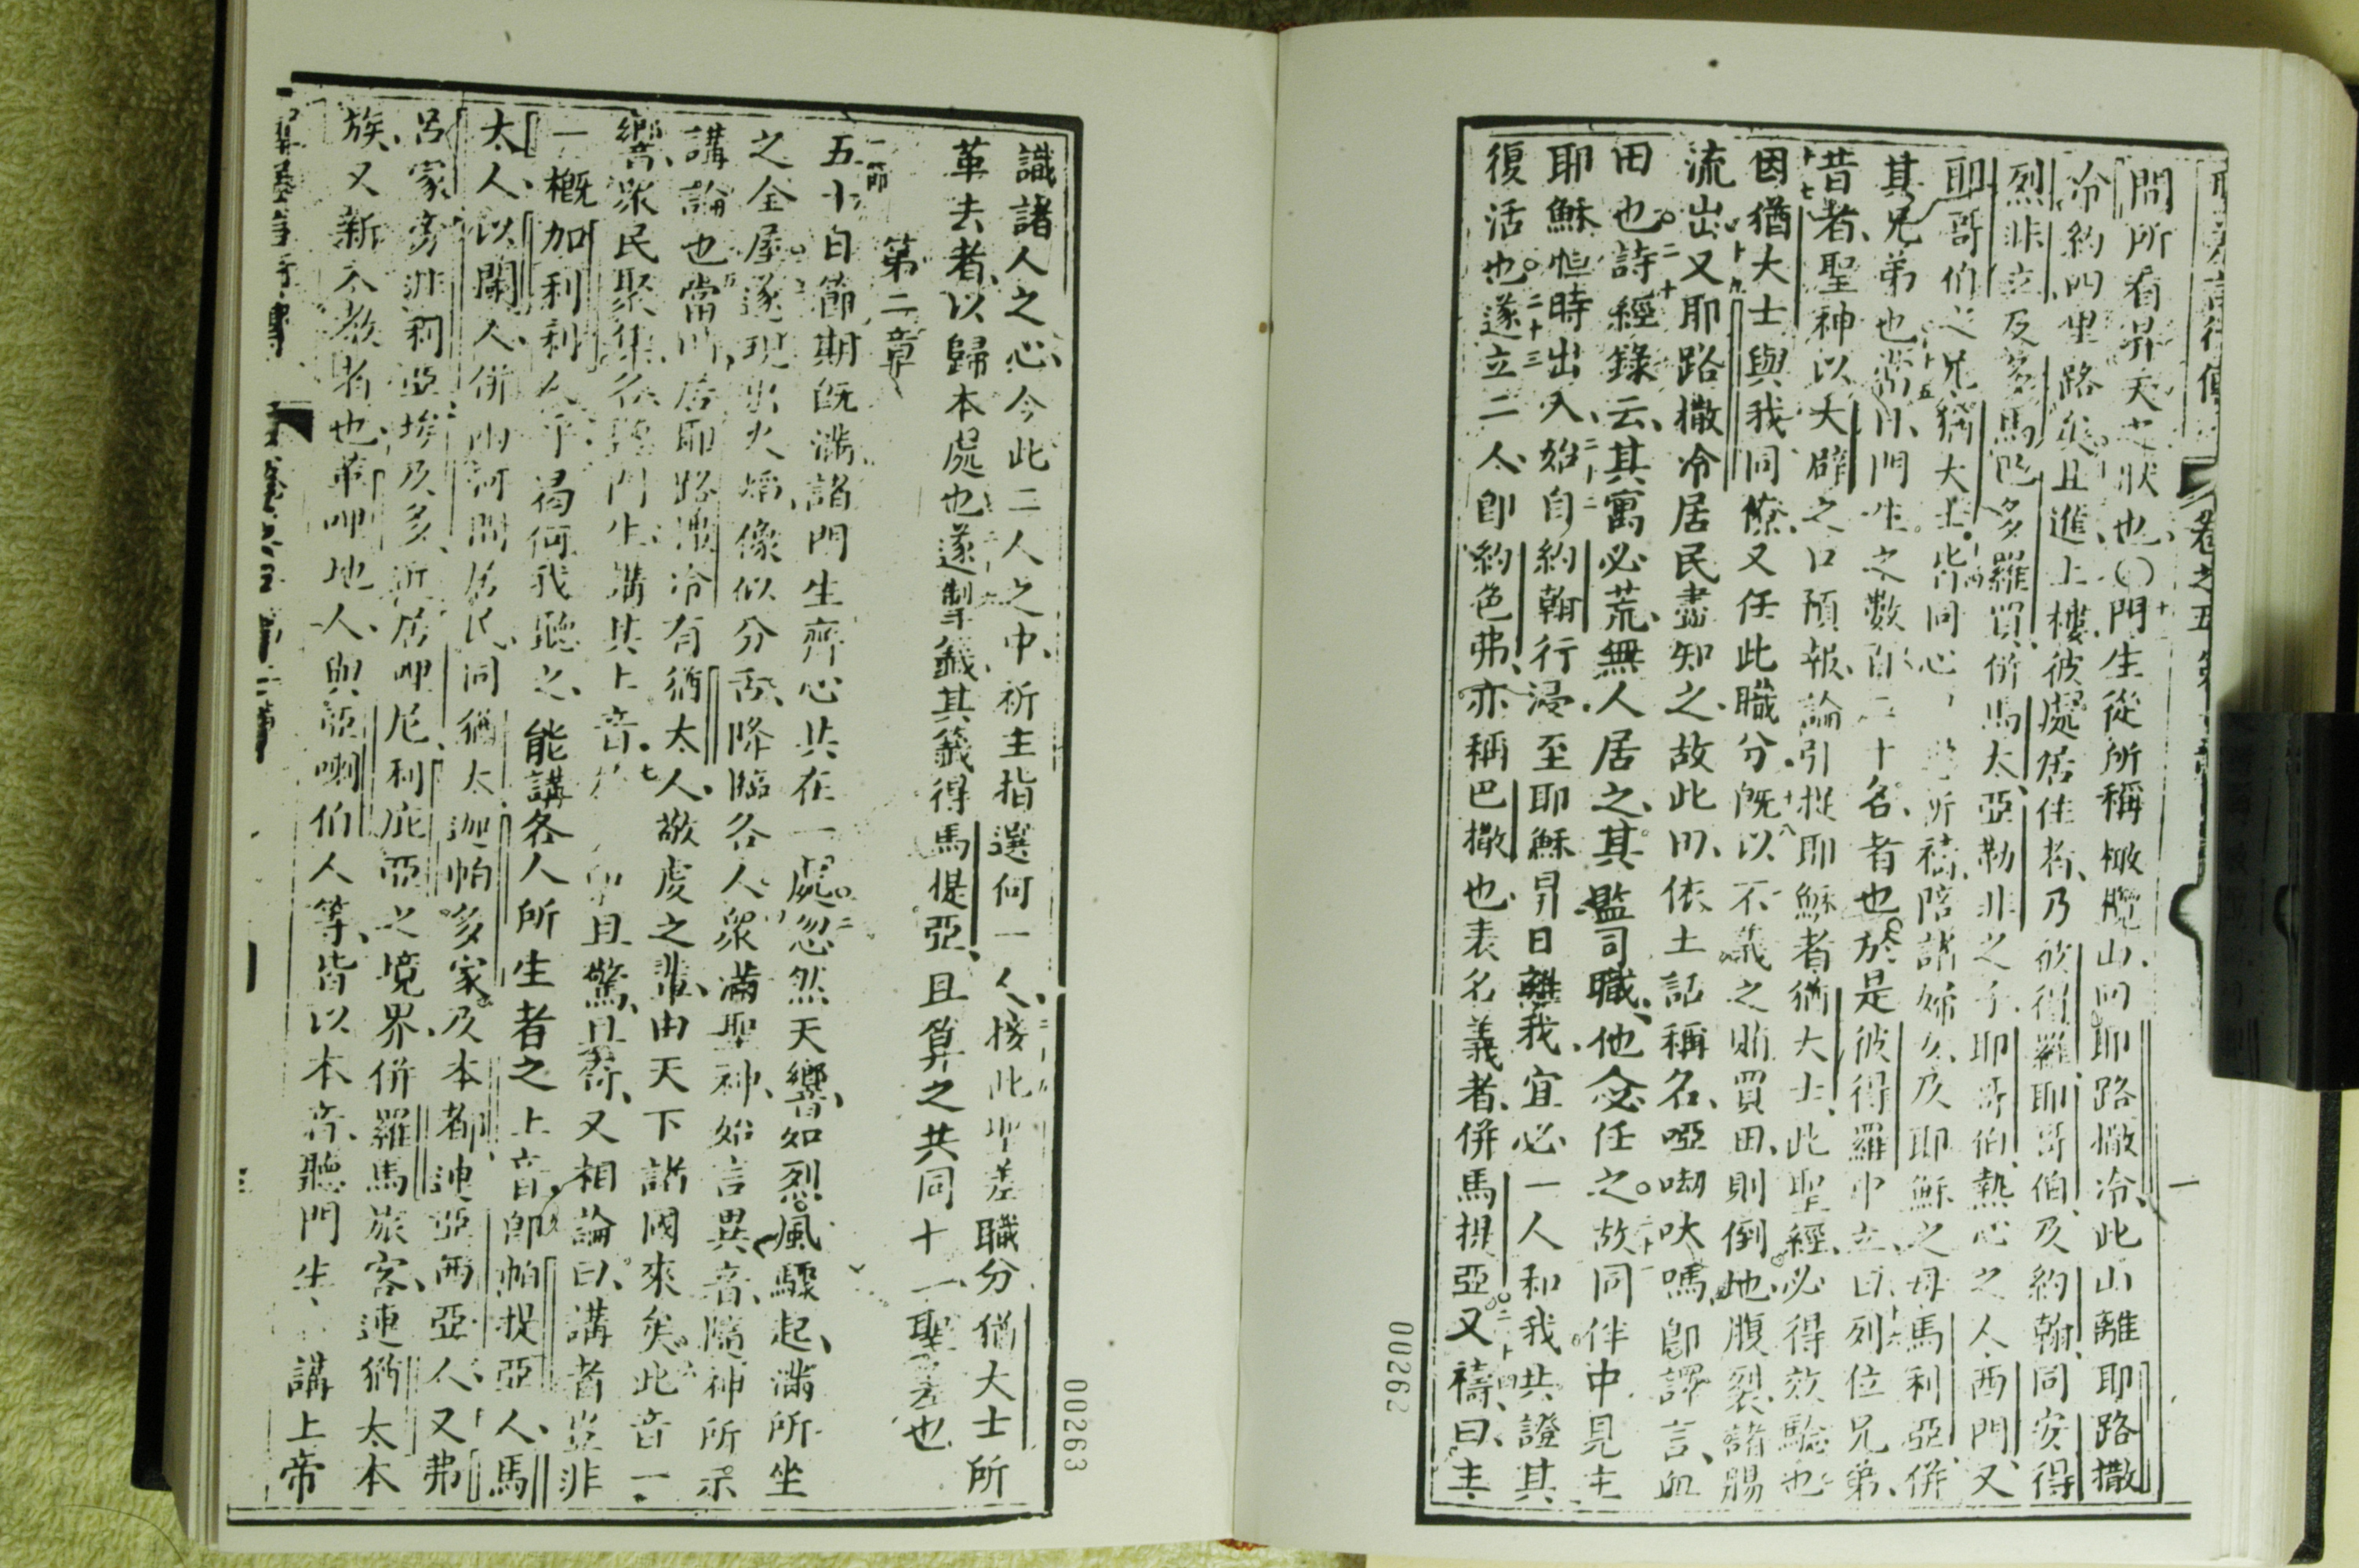 聖差言行傳 卷之五
問所看昇天之狀也〇門生從所稱橄欖山向耶路撒冷此山離耶路撒
冷約四里路矣且進上樓彼處居住者乃彼得羅耶哥伯及約翰同安得
烈非立及多馬巴多羅買併馬太亞勒非之子耶哥伯熱心之人西門又
耶哥伯之兄猶大士皆同心 所禱陪諸婦人及耶穌之母馬利亞併
其兄弟也當日門生之數 二十名者也於是彼得羅中立曰列位兄弟
昔者聖神以大辟之口預報論引捉耶穌者猶大士此聖經必得效驗也
因猶大士與我同僚又任此職分既以不義之賄買田則倒地腹裂諸腸
流出又耶路撒冷居民盡知之故此田依土話稱名啞㗅吠嗎卽譯言血
田也詩經錄云其寓必荒無人居之其監司職他人必任之故同伴中見主
耶穌恒時出入始自約翰行浸至耶穌昇日離我宜必一人和我共證其
復活也遂立二人卽約色弗亦稱巴撒也表名義者併馬提亞又禱曰主
00262
識諸人之心今此二人之中祈主指選何一人接此聖差職分猶大士所
革去者以歸本處也遂掣籤其籤得馬提亞且算之共同十一聖差也
第二章
一節
五十日節期既滿諸門生齊心共在一處忽然天響如烈風驟起滿所坐
之全屋遂現出火焰像似分舌降臨各人衆滿聖神始言異音隨神所示
講論也當時居耶路撒冷有猶太人敬虔之輩由天下諸國來矣此音一
響衆民聚集各聽門生講其土音 且驚且奇又相論曰講者豈非
一概加利利人乎曷何我聽之能講各人所生者之土音卽帕提亞人馬
太人以闌人併兩河間居民同猶太迦帕多家及本都連亞西亞人又弗
呂家旁非利亞埃及多近居呷尼利庇亞之境界併羅馬旅客連猶太本
族又新入教者也革呷地人與亞喇伯人等皆以本音聽門生講上帝
00263